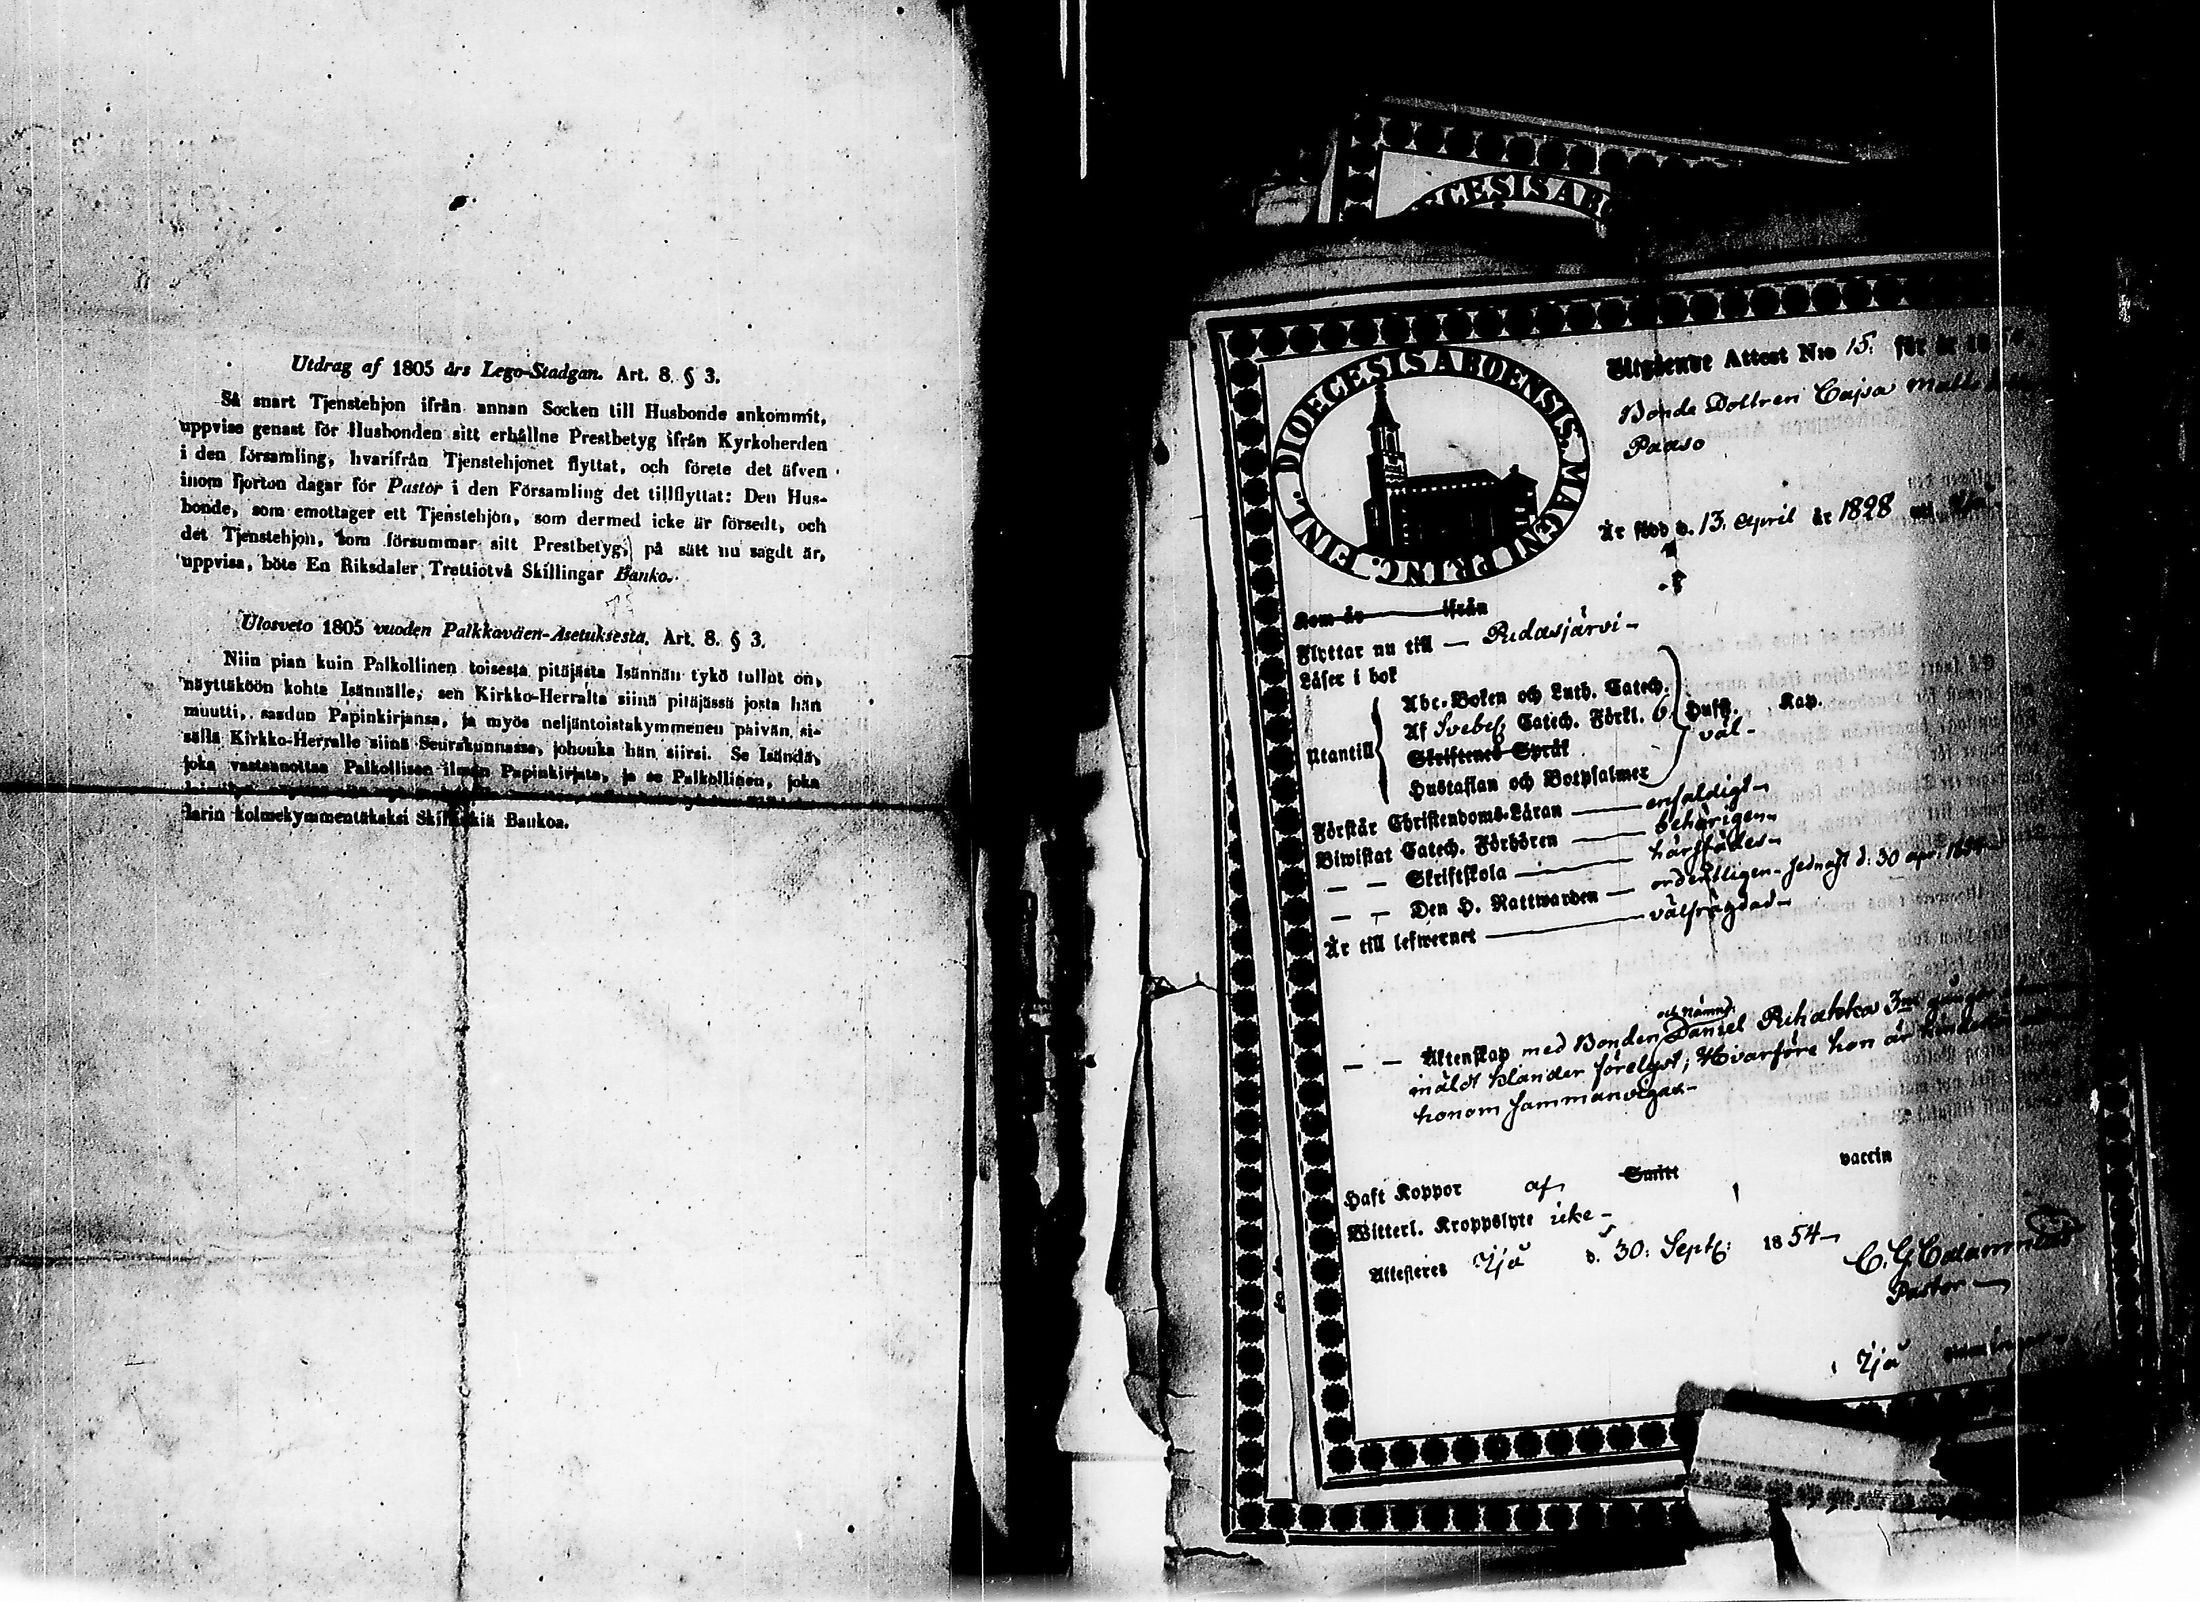 Utdrag af 1805 års Lego-Stadgan. Art. 8. § 3.
Så snart Tjenstehjon ifrån annan Socken till Husbonde ankommit,
uppvise genast för Husbonden sitt erhållne Prestbetyg ifrån Kyrkoherden
i den församling, hvarifrån Tjenstehjonet flyttat, och förete det äfven
inom fjorton dagar för Pastor i den Församling det tillflyttat: Den Hus-
bonde, som emottager ett Tjenstehjon, som dermed icke är försedt, och
det Tjenstehjon, som försummar sitt Prestbetyg, på sätt nu sagdt är,
uppvisa, böte En Riksdaler Trettiotvå Skillingar Banko.
Ulosveto 1805 vuoden Palkkaväen-Asetuksesta. Art. 8. § 3.
Niin pian kuin Palkollinen toisesta pitäjästa Isännän tykö tullut on,
näyttäköön kohta Isännälle, sen Kirkko-Herralta siinä pitäjässä josta hän
muutti, saadun Papinkirjansa, ja myös neljäntoistakymmenen päivän si-
sällä Kirkko-Herralle siinä Seurakunnassa, johonka hän siirsi. Se Isändä,
joka vastaanottaa Palkollisen ilman Papinkirjata, ja se Palkollinen, joka
larin kolmekymmentäkaksi Skillinkiä Bankoa.
CESIS ABO
DIOECESIS ABOENSIS MAGNI PRINC. FINL.
Utgående Attest N:o 15. för år 18
Bonde Dottren Cajsa Matts
Paaso
Är född d. 13. April år 1828
Kom år ifrån
Flyttar nu till — Pudasjärvi —
Läser i bok
Abc-Boken och Luth. Catech.
Utantill Af Svebel. Catech. Förkl. Hust. Kap.
Skriftenes Språk väl -
Hustaflan och Botpsalmer
Förstår Christendoms-Läran — enfaldigt -
Biwistat Catech. Förhören — behörigen -
— — Skriftskola — härstädes -
— — Den H. Nattwarden — ordentligen - sednast d. 30 apr. 1854
Är till lefwernet — välfrägdad -
och Nämnd.
— — Äktenskap med Bonden Daniel Puhakka 3ne gånger
mäldt hlander förelyst; Hvarföre hon är hinderlös
honom sammanvigas -
Haft Koppor af Smitt vaccin
Witterl. Kroppslyte icke -
Attesteres Ijå d. 30. Sept: 1854 -
C. G. Calamnius
Pastor —
Ijå